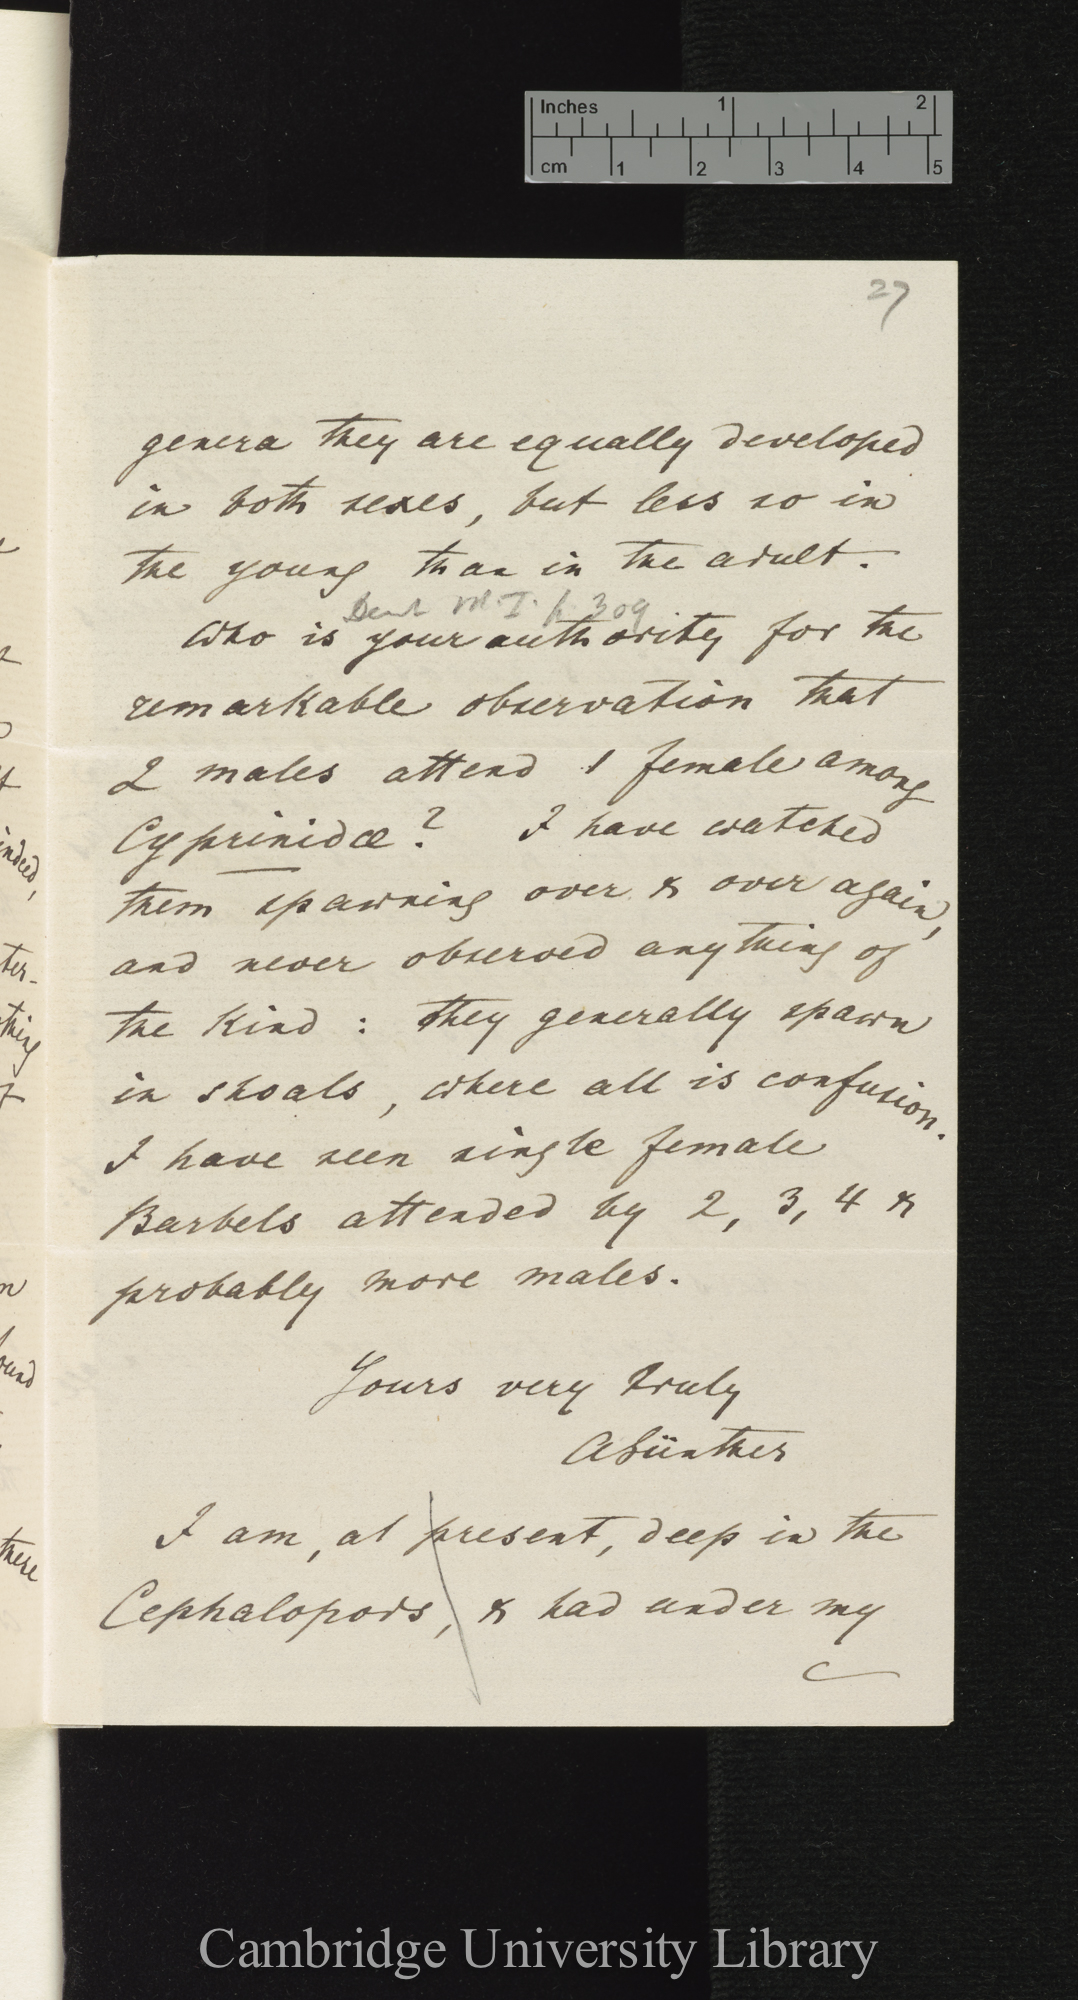 Inches 1 2
cm 1 2 3 4 5
27
genera they are equally developed
in both sexes, but less so in
the young than in the adult.
M.I. p. 309
Who is your authority for the
remarkable observation that
2 males attend 1 female among
Cyprinidæ? I have watched
them spawning over & over again,
and never observed anything of
the kind : they generally spawn
in shoals, where all is confusion.
I have seen single female
Barbels attended by 2, 3, 4 &
probably more males.
Yours very truly
AGünther
I am, at present, deep in the
Cephalopods, & had under my
indeed,
ter-
thing
ound
there
Cambridge University Library